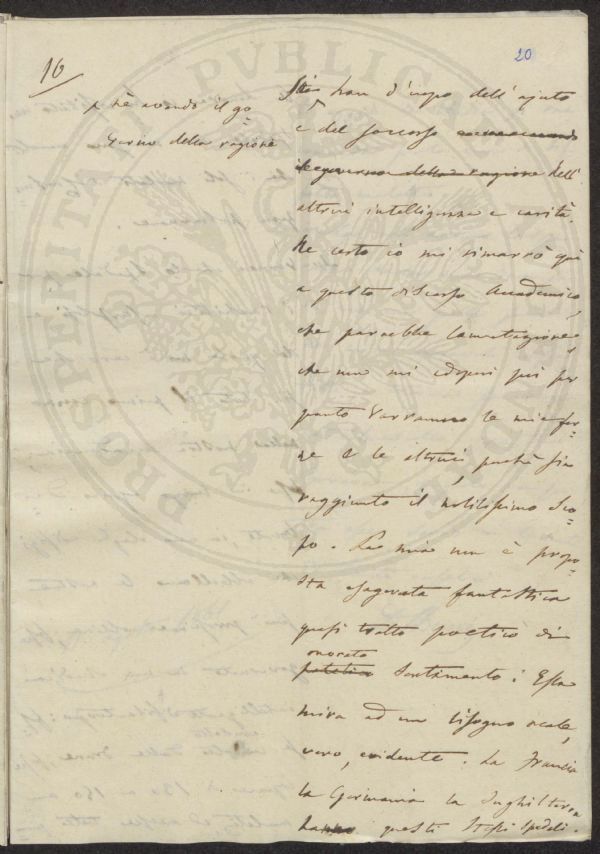 16
20
p nè avendo il go=
verno della ragione
han d'uopo dell'ajuto
e del soccorso
il governo della ragione dell'
altrui intelligenza e carità.
Ne certo io mi rimarrò quì
a questo discorso Accademico,
che parrebbe lamentazione,
che non mi adoperi poi per
quanto varranno le mie for=
ze e le altrui, perchè sia
raggiunto il nobilissimo sco=
po. La mia non è propo=
sta esagerata fantastica
quasi tratto poetico di
onorato
patetico sentimento: Essa
mira ad un bisogno reale,
vero, evidente. La Francia
la Germania la Inghilterra
hanno questi stessi spedali.
PROSPERITATI PUBLICAE